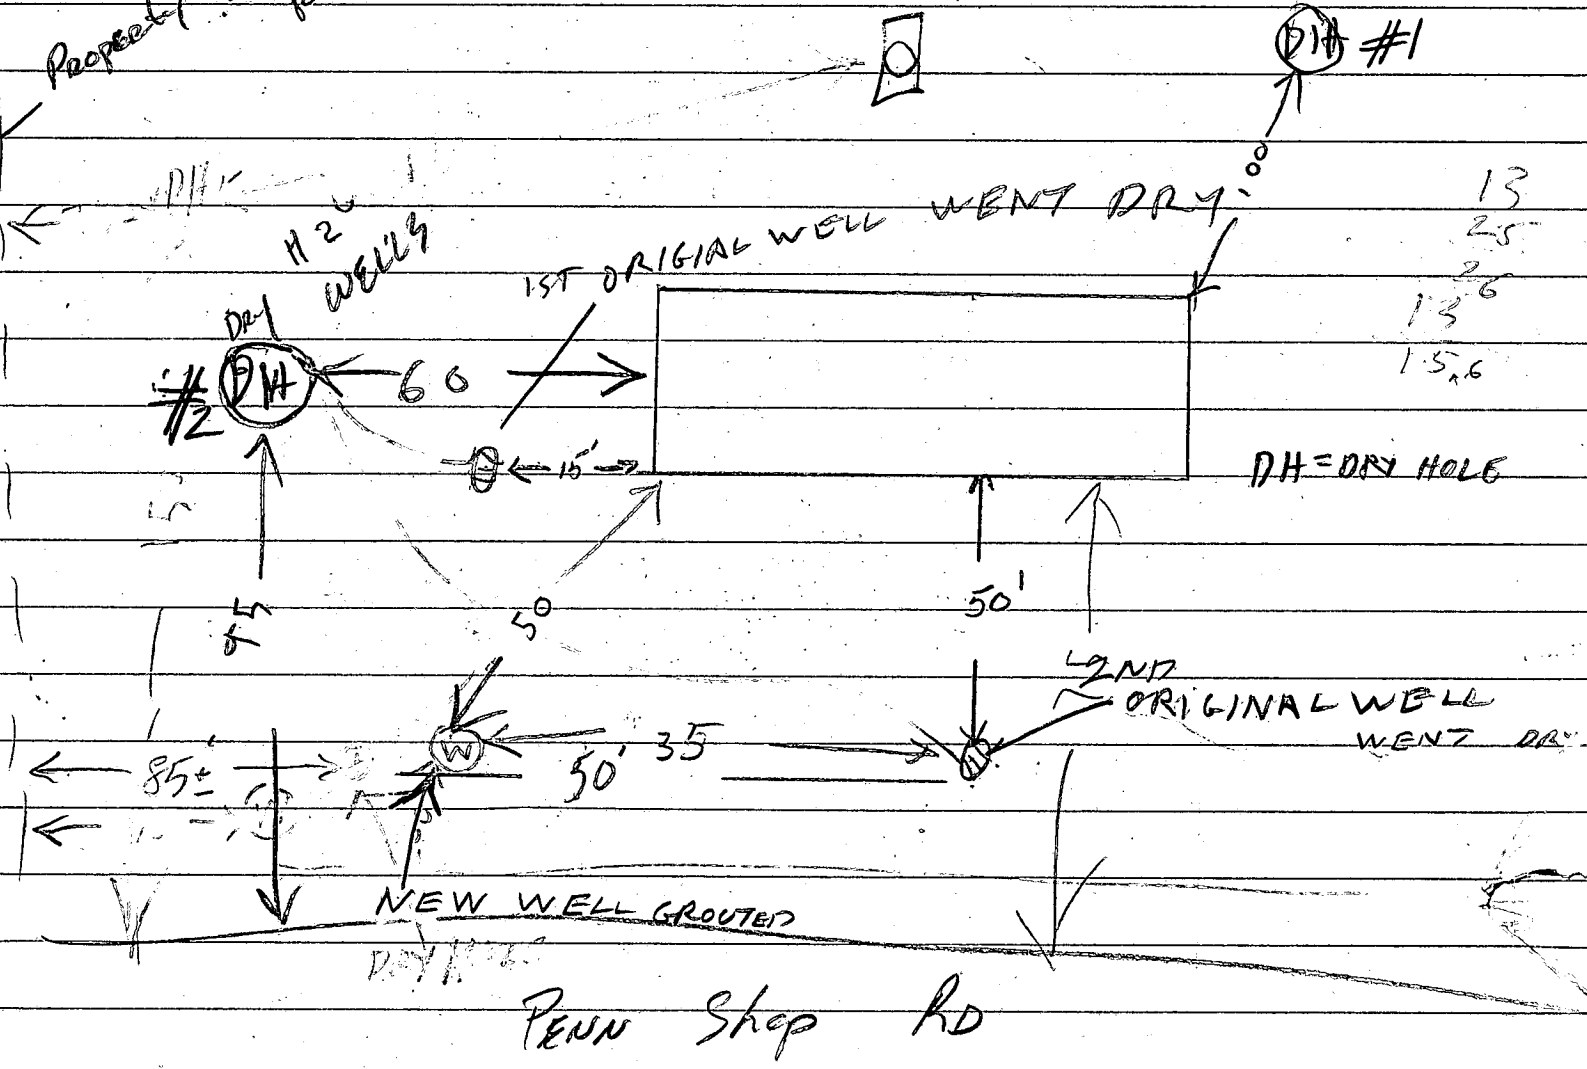 PROPERTY
DH #1
1ST ORIGIAL WELL WENT DRY
13
25
26
13
15.6
H2
WELLS
DRY
DH
#2
60
15'
DH = DRY HOLE
45
50
50'
2ND
ORIGINAL WELL
WENT DRY
W
85'±
50' 35
NEW WELL GROUTED
DRY
PENN Shop RD